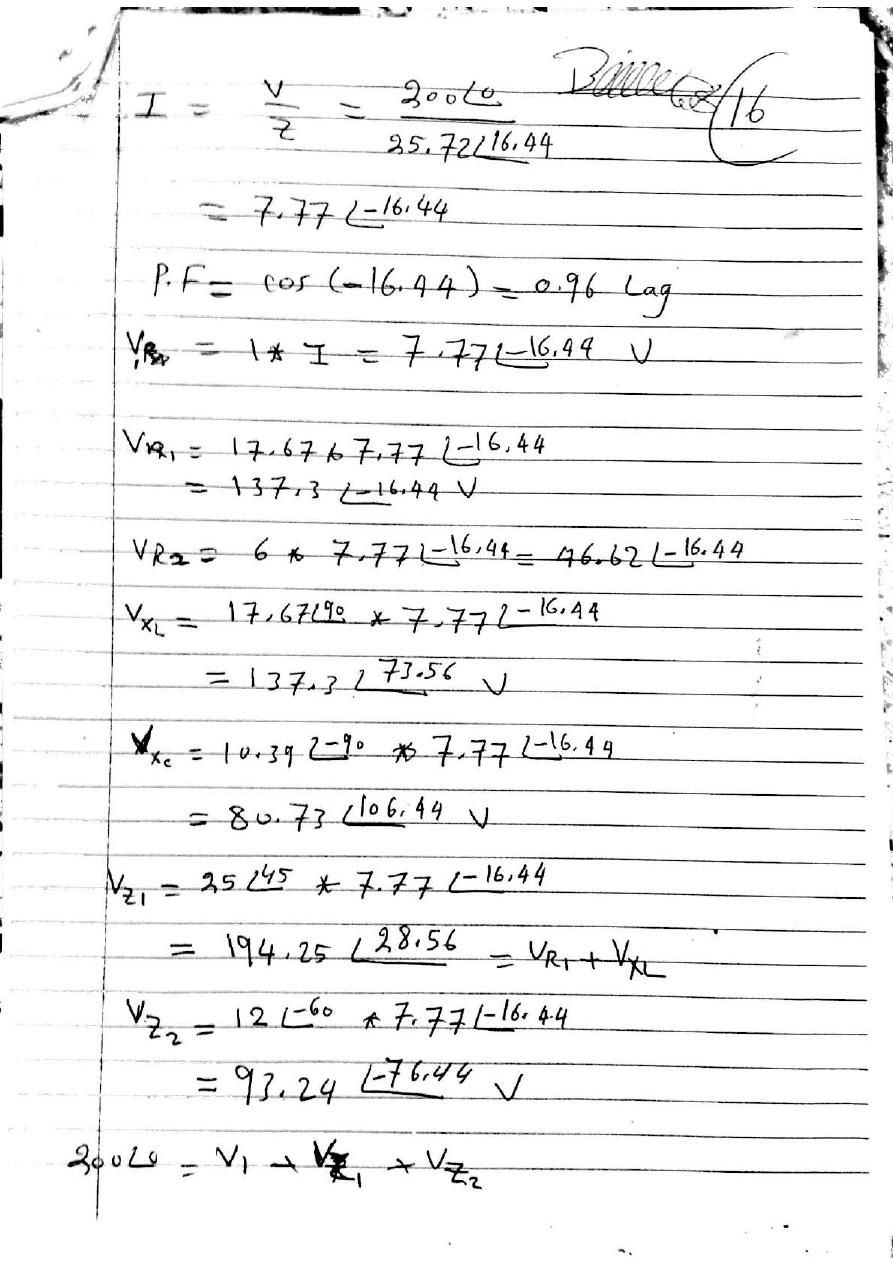 I = V/Z = 200∠0 / 25.72∠16.44
16
= 7.77 ∠-16.44
P.F = cos (-16.44) = 0.96 Lag
VR = 1 * I = 7.77∠-16.44 V
VR1 = 17.67 * 7.77 ∠-16.44
= 137.3 ∠-16.44 V
VR2 = 6 * 7.77∠-16.44 = 46.62 ∠-16.44
VXL = 17.67∠90 * 7.77∠-16.44
= 137.3 ∠73.56 V
VXc = 10.39 ∠-90 * 7.77 ∠-16.44
= 80.73 ∠106.44 V
VZ1 = 25∠45 * 7.77 ∠-16.44
= 194.25 ∠28.56 = VR1 + VXL
VZ2 = 12∠-60 * 7.77∠-16.44
= 93.24 ∠-76.44 V
200∠0 = V1 + VZ1 + VZ2